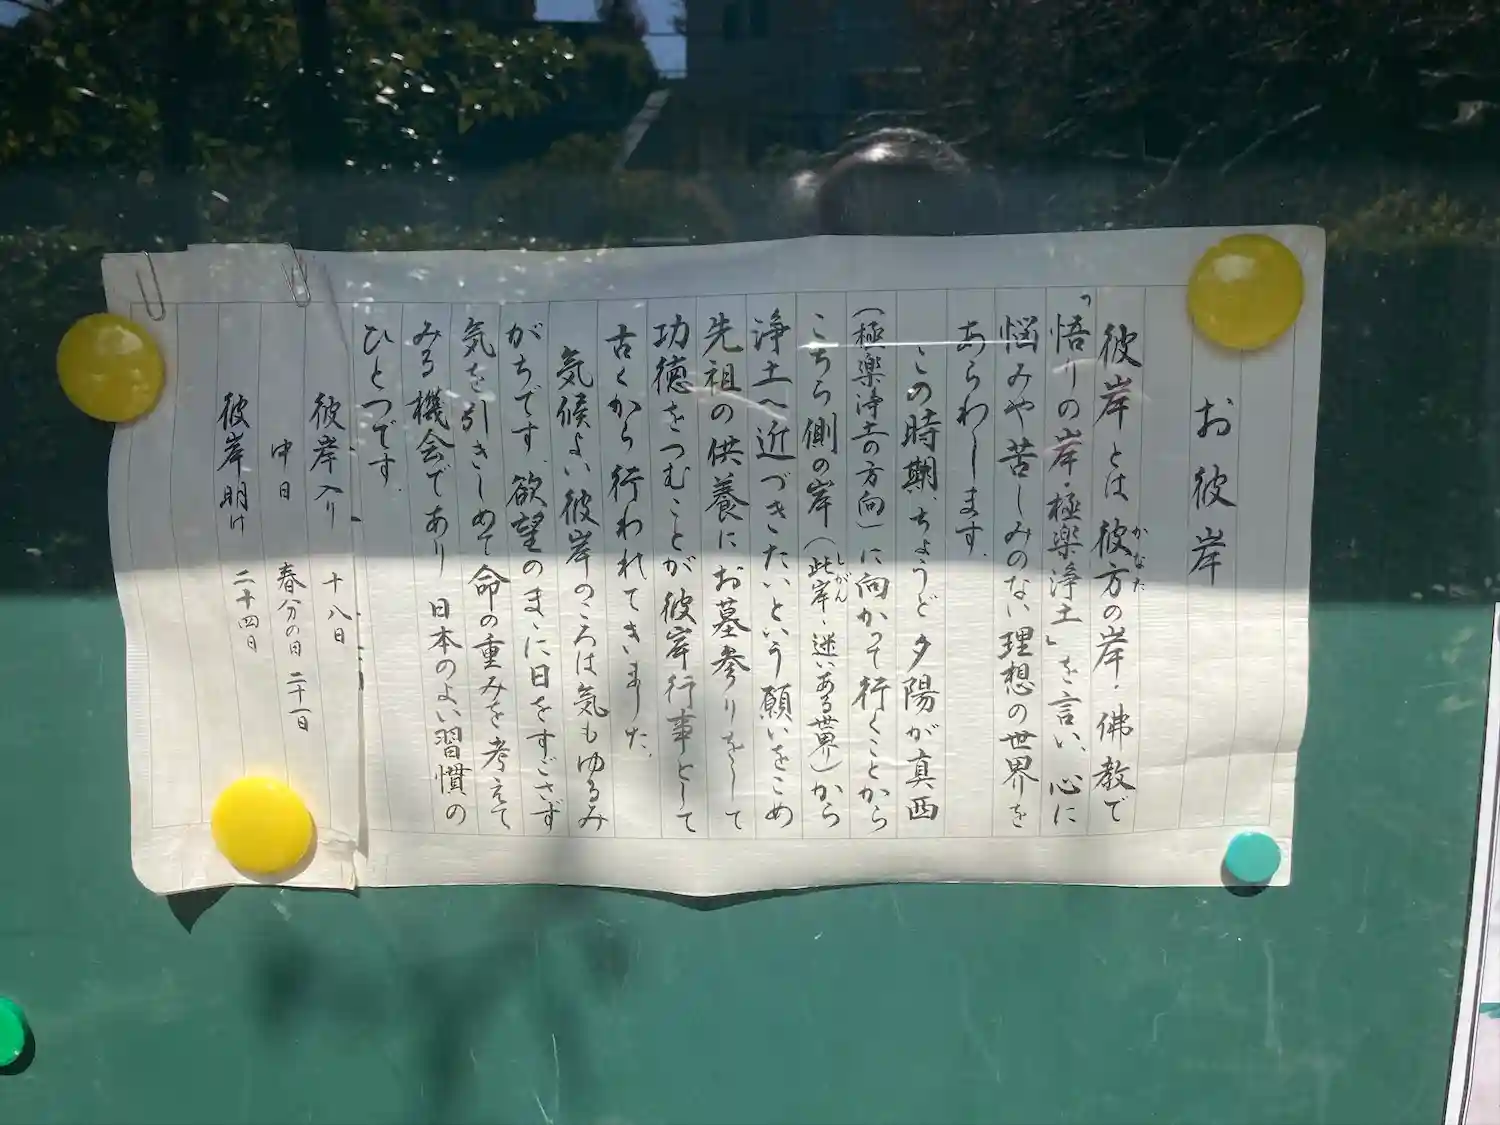 お彼岸
彼岸とは彼方の岸、佛教で
かなた
「悟りの岸・極楽浄土」を言い、心に
悩みや苦しみのない理想の世界を
あらわします。
この時期、ちょうど夕陽が真西
(極楽浄土の方向)に向かって行くことから
こちら側の岸(此岸・迷いある世界)から
しがん
浄土へ近づきたいという願いをこめ
先祖の供養にお墓参りをして
功徳をつむことが彼岸行事として
古くから行われてきました。
気候よい彼岸のころは気もゆるみ
がちです。欲望のまゝに日をすごさず
気を引きしめて命の重みを考えて
みる機会であり 日本のよい習慣の
ひとつです。
彼岸入り 十八日
中日 春分の日 二十一日
彼岸明け 二十四日